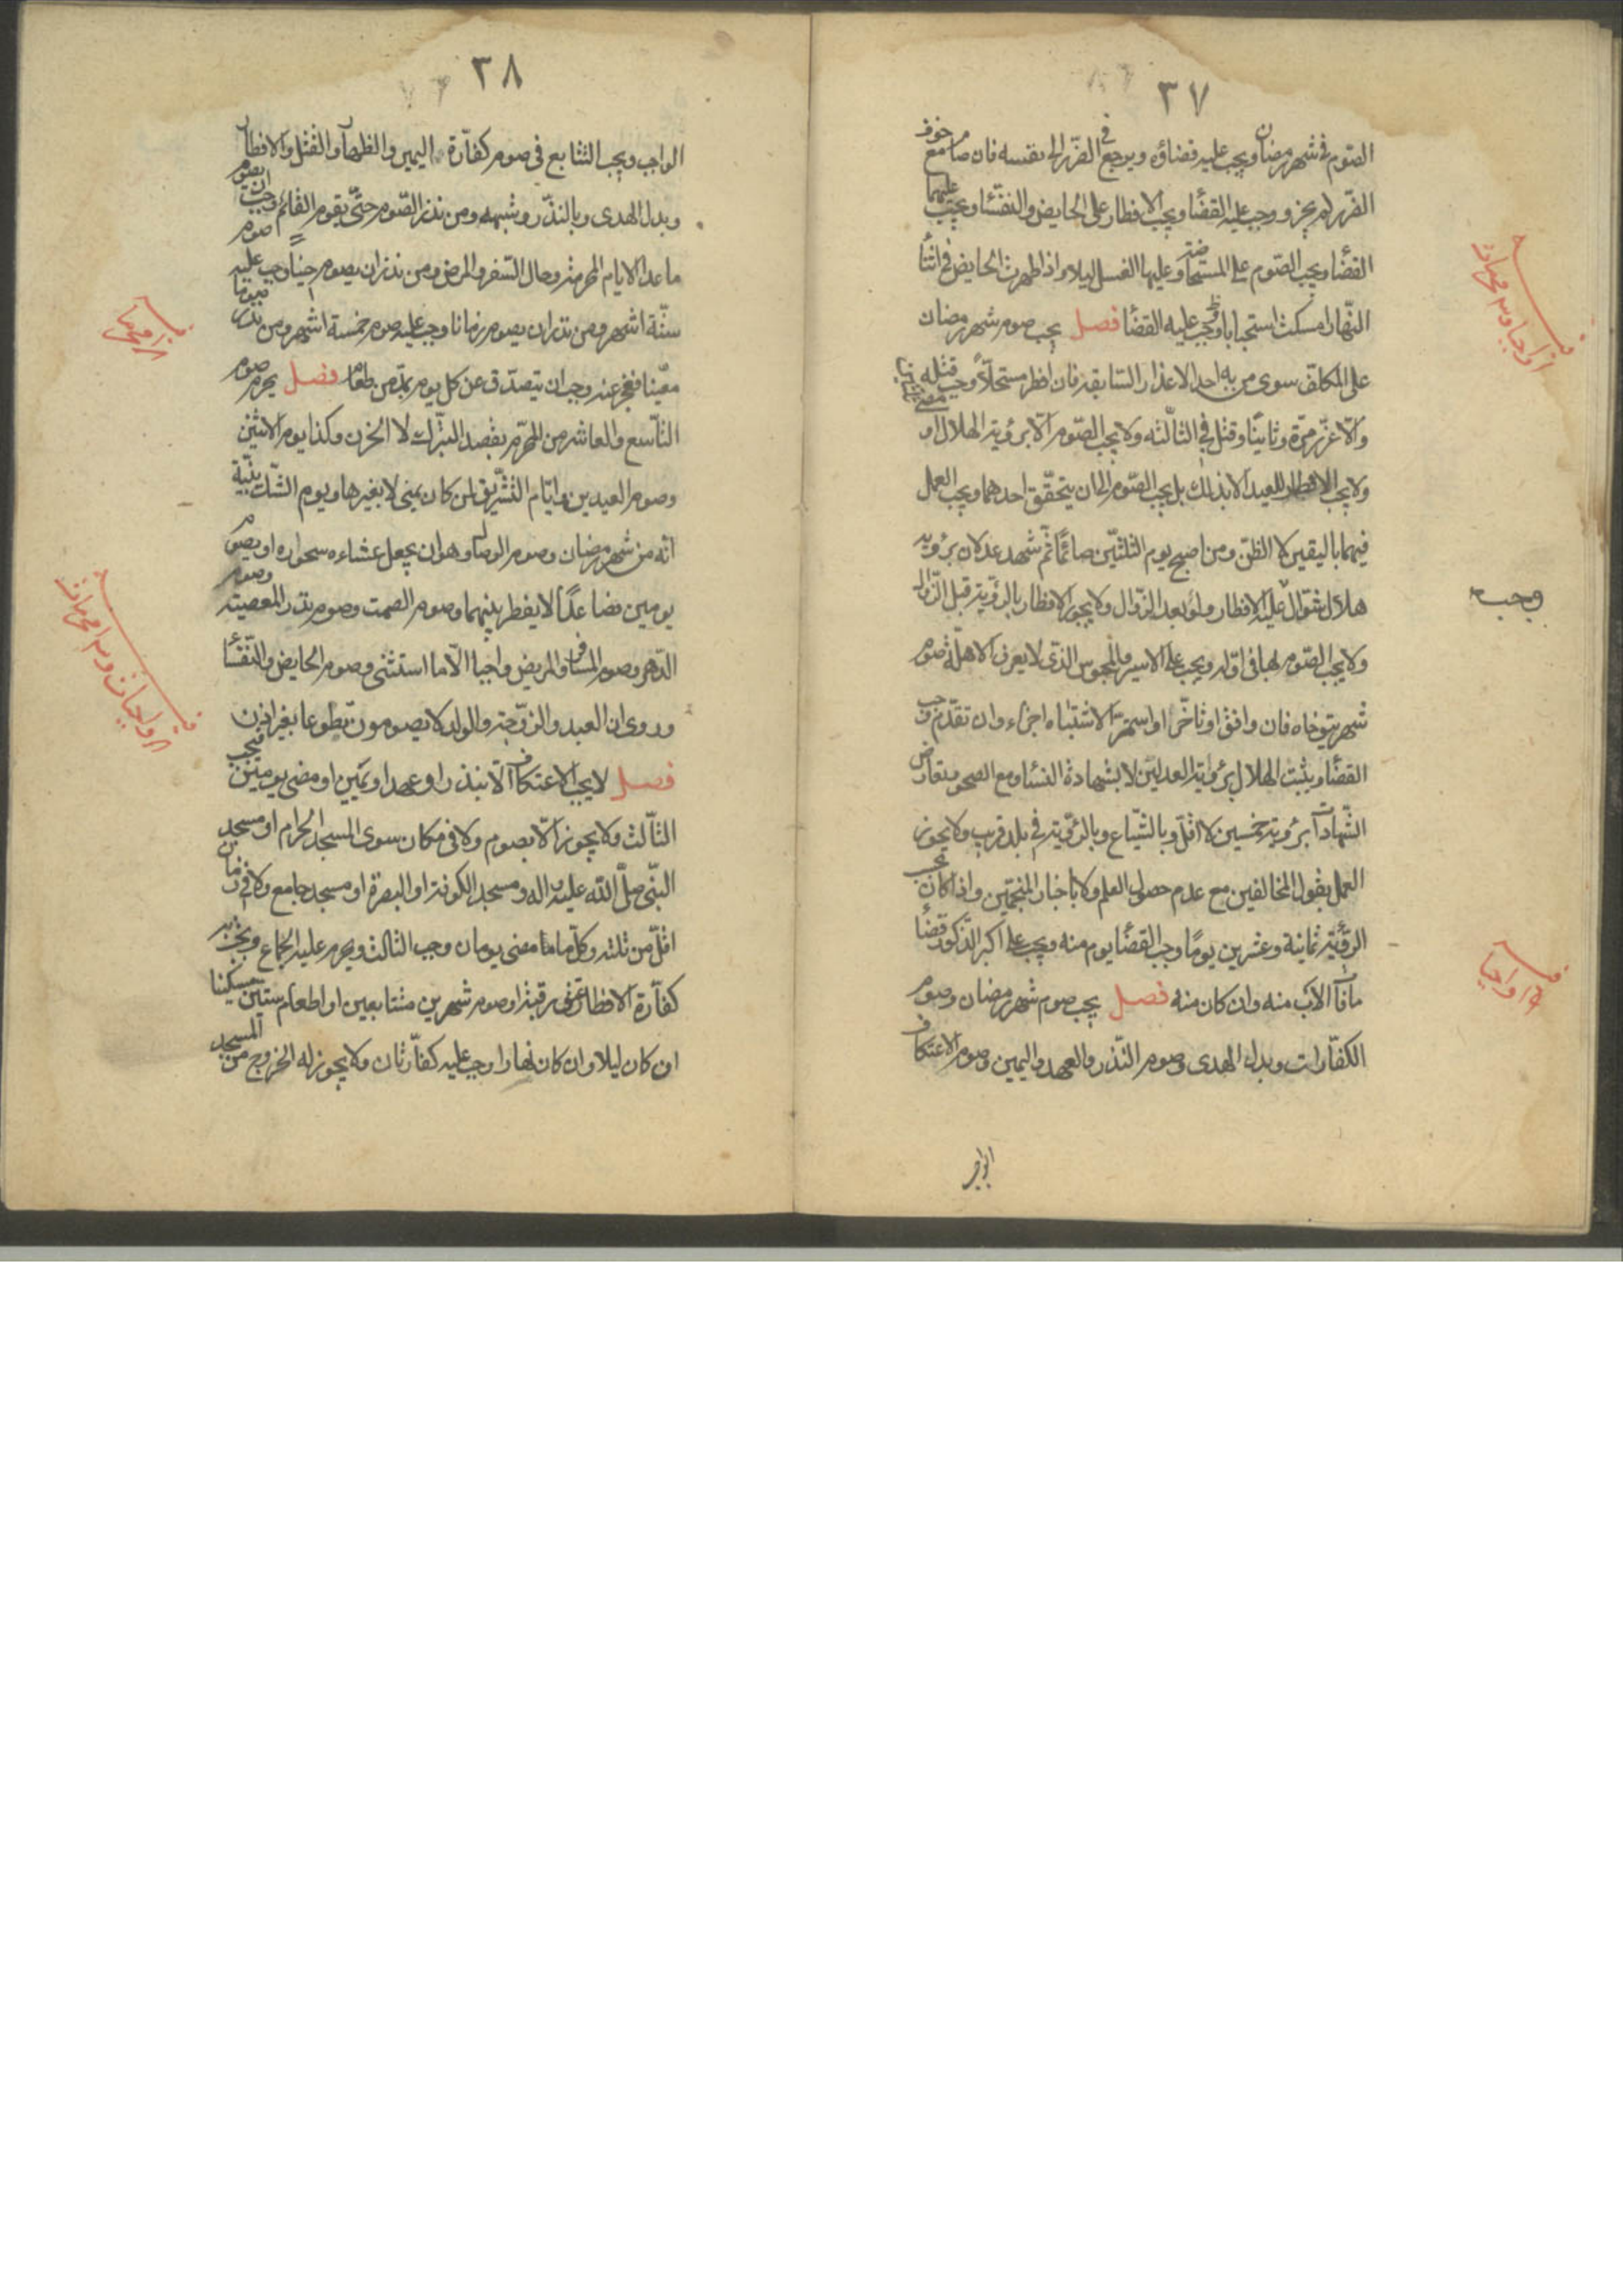 ٣٧
الصّوم فى شهر رمضان ويجب عليه قضاؤه ويرجع فى الضّرر الى نفسه فان صام مع خوف
الضّرر لم يجز و وجب عليه القضاء ويجب الافطار على الحايض والنفساء ويجب عليهما
القضاء ويجب الصّوم على المستحاضة وعليها الغسل ليلا واذا طهرت الحايض فى اثناء
النّهار امسكت استحبابا ووجب عليه القضاء فصل يجب صوم شهر رمضان
على المكلف سوى من به احد الاعذار السّابقة فان افطر مستحلّاً وجب قتله
والّا عزّر مرّة وثانيًا وقتل فى الثالثه ولا يجب الصّوم الّا برؤية الهلال او
ولا يجب الافطار للعيد الا بذلك بل يجب الصّوم الى ان يتحقّق احدهما ويجب العمل
فيهما باليقين لا الظنّ ومن اصبح يوم الثلثين صائمًا ثم شهد عدلان برؤية
هلال شوّال عليه الافطار ولو بعد الزّوال ولا يجوز الافطار بالرؤية قبل الزّوال
وجب
ولا يجب الصّوم لها فى اوّله ويجب على الاسير والمحبوس الذى لا يعرف الاهلّة صوم
شهر يتوخاه فان وافق او تأخّر او استمرّ الاشتباه اجزاء وان تقدّم وجب
القضاء ويثبت الهلال برؤية العدلين لا بشهادة النساء ومع الصحو وتعارض
الشّهادات برؤية خمسين لا اقلّ وبالشّياع وبالرّؤية فى بلد قريب ولا يجوز
العمل بقول المخالفين مع عدم حصول العلم ولا باخبار المنجّمين واذا كان
الرّؤية ثمانية وعشرين يومًا وجب القضاء يوم منه ويجب على اكبر الذّكور قضاء
ما فات الاب منه وان كان منه فصل يجب صوم شهر رمضان وصوم
الكفّارات وبدل الهدى وصوم النّذر والعهد واليمين وصوم الاعتكاف
الواجب
٣٨
الواجب ويجب التتابع فى صوم كفّارة اليمين والظهار والقتل والافطار
وبدل الهدى وبالنذر وشبهه ومن نذر الصّوم حتّى يقوم القائم وجب ان يصوم
ما عدا الايام المحرمة وحال السّفر والمرض ومن نذر ان يصوم حينًا وجب عليه صوم
ستّة اشهر ومن نذر ان يصوم زمانا وجب عليه صوم خمسة اشهر ومن نذر صوما
معيّنا فعجز عنه وجب ان يتصدّق عن كل يوم بمدّ من طعام فصل يحرم صوم
التاسع والعاشر من المحرّم بقصد التبرّك لا الحزن وكذا يوم الاثنين
وصوم العيدين وايّام التشريق لمن كان بمنى لا بغيرها ويوم الشّك بنيّة
انّه من شهر رمضان وصوم الوصال وهو ان يجعل عشاءه سحوره او يصوم
يومين فصاعدًا لا يفطر بينهما وصوم الصمت وصوم نذر المعصية وصوم
الدّهر وصوم المسافر والمريض واجبا الّا ما استثنى وصوم الحايض والنّفساء
وروى ان العبد والزّوجة والولد لا يصومون تطوعا بغير اذن
فصل لا يجب الاعتكاف الّا بنذر او عهد او يمين او مضى يومين فيجب
الثّالث ولا يجوز الّا بصوم ولا فى مكان سوى المسجد الحرام او مسجد
النبّى صلّى اللّه عليه واله ومسجد الكوفة او البصرة او مسجد جامع ولا فى زمان
اقلّ من ثلثة وكل ما مضى يومان وجب الثالث ويحرم عليه الجماع ويجب به
كفّارة الافطار عتق رقبة او صوم شهرين متتابعين او اطعام ستين مسكينا
ان كان ليلا وان كان نهارا وجب عليه كفّارتان ولا يجوز له الخروج من المسجد